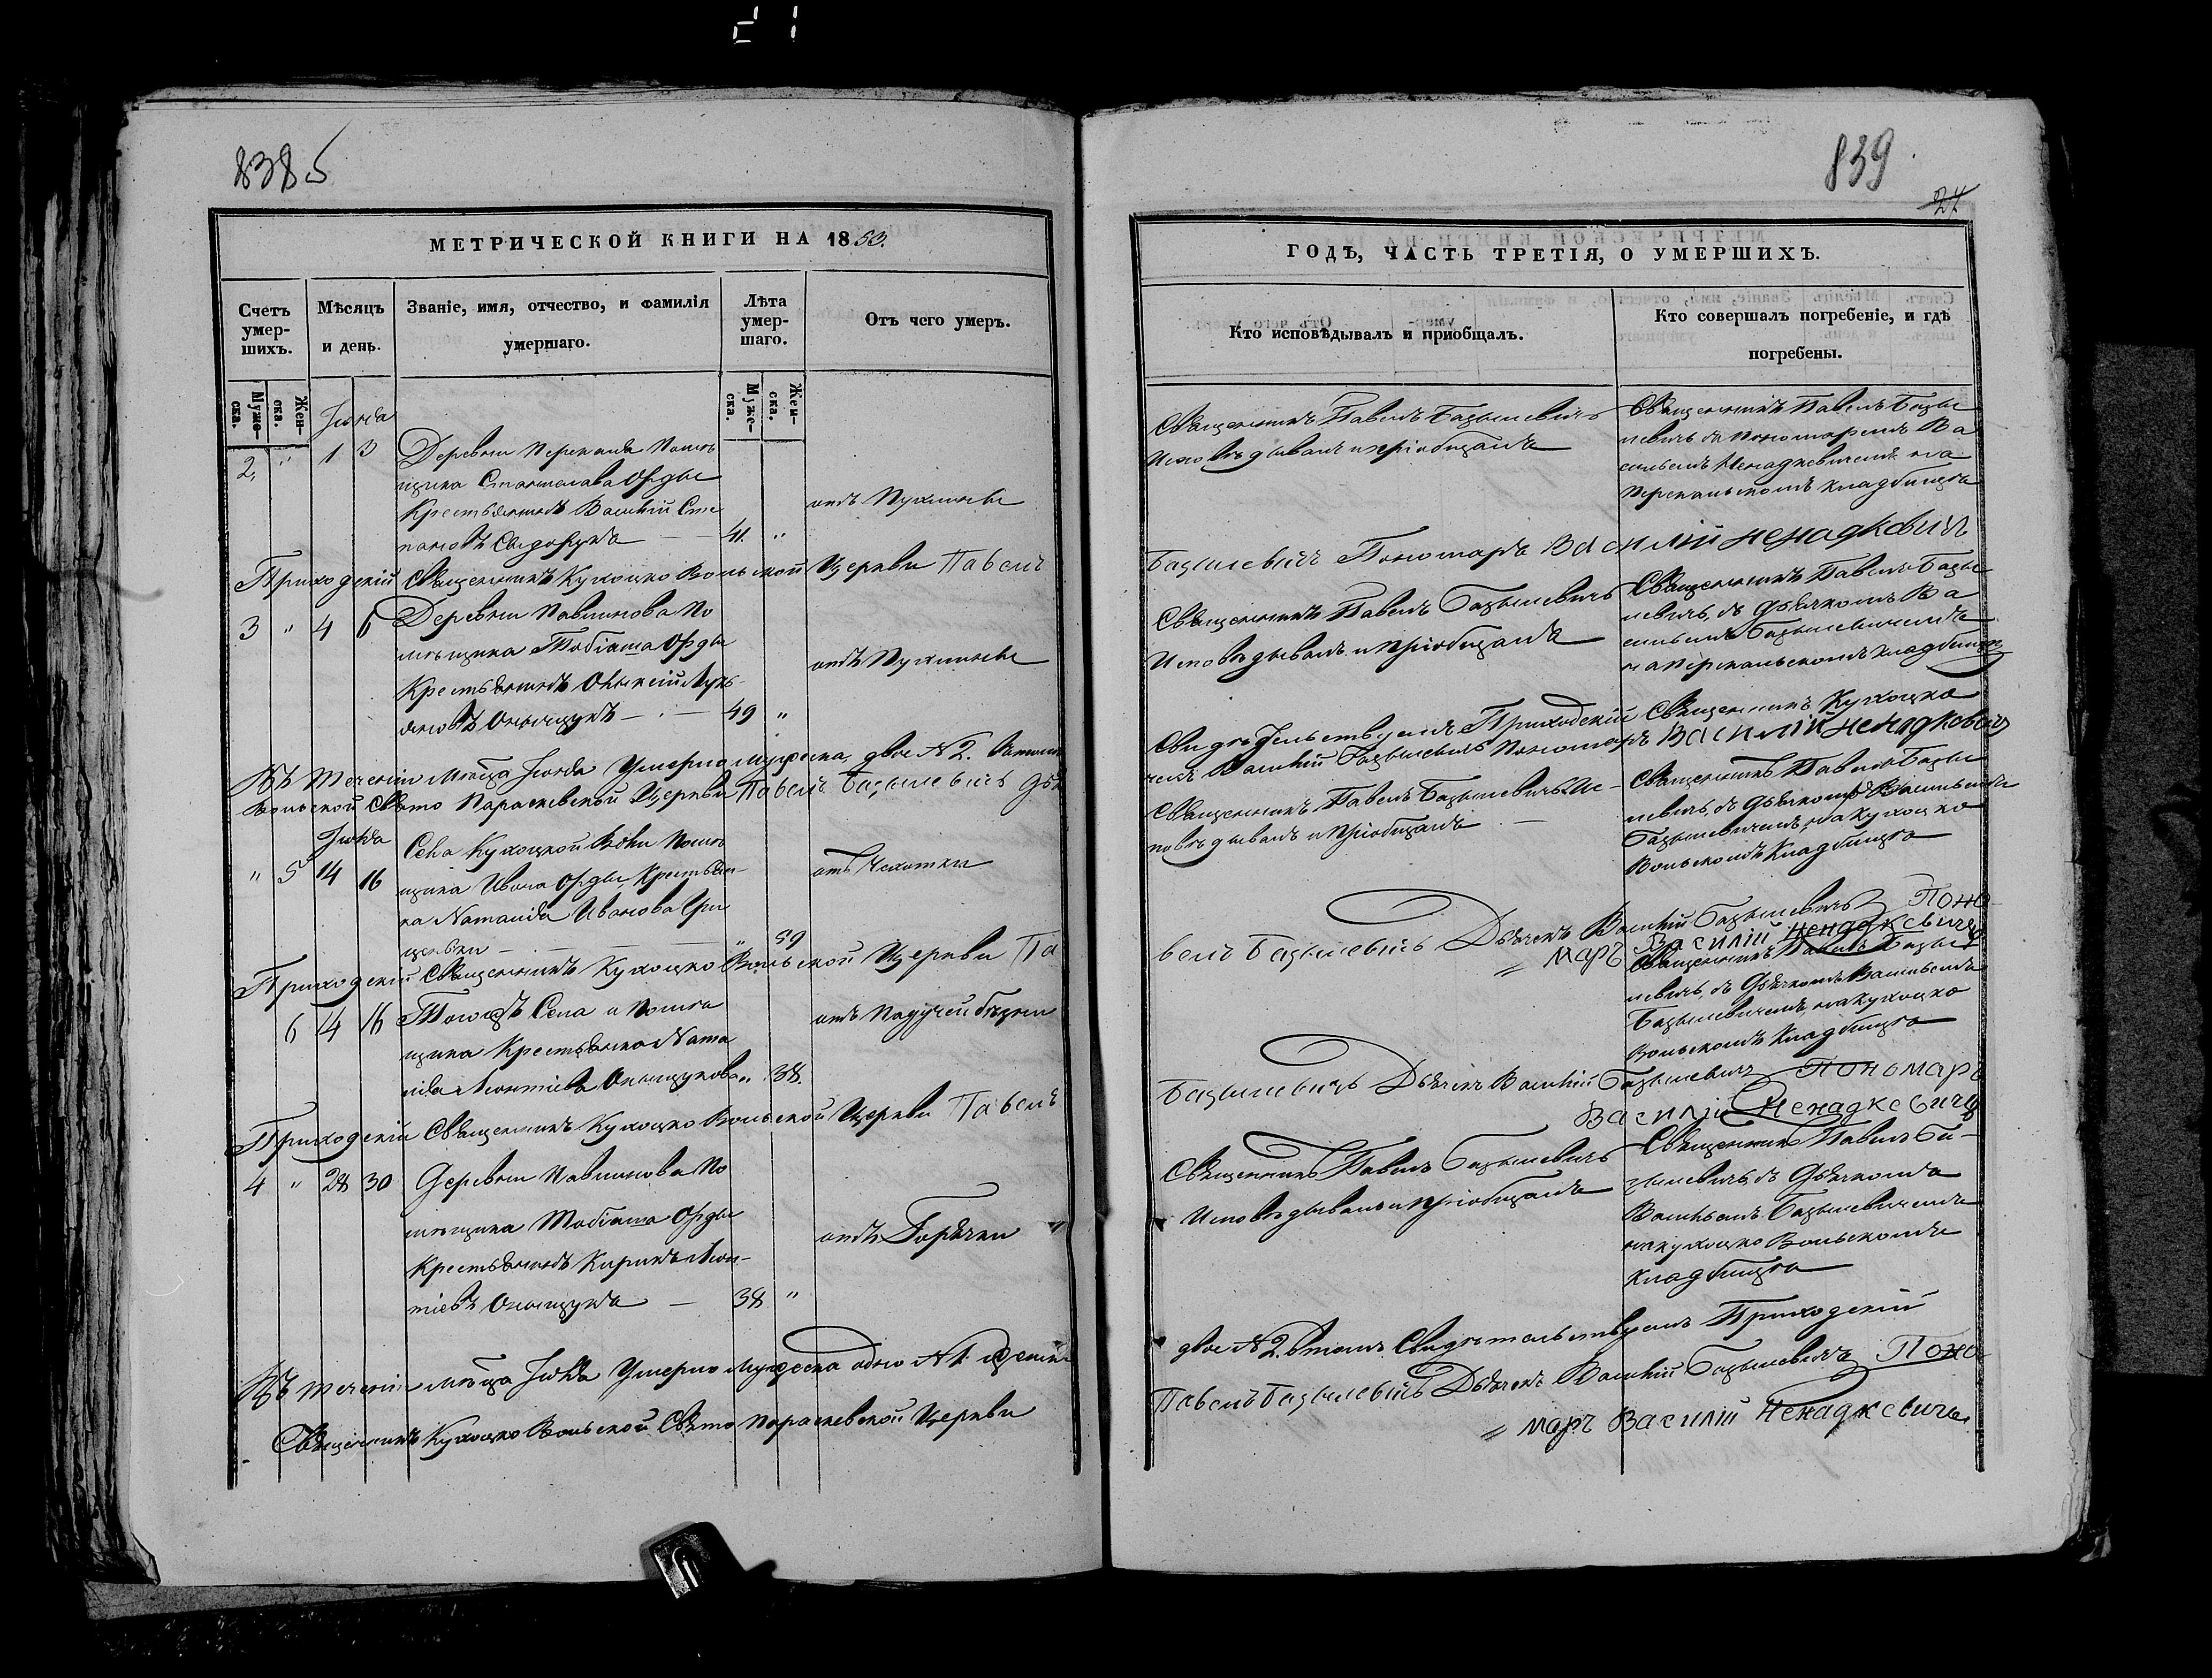 8385
МЕТРИЧЕСКОЙ КНИГИ НА 1853.
Счетъ умер-шихъ.
Мѣсяцъ и день.
Званіе, имя, отчество, и фамилія умершаго.
Лѣта умер-шаго.
Отъ чего умеръ.
Муже-ска.
Жен-ска.
Муже-ска.
Жен-ска.
2, " 1 3
Деревни
щика Станислава Орды
Крестьянинъ Василій Сте
41. "
Приходскій Священникъ Кухоцко Вольской Церкви Павелъ
3 " 4 6
Деревни Павлинова По
мѣщика Тобіаша Орды
Крестьянинъ Алексій Лукь-
яновъ Оныщукъ — 49 "
Въ теченіи мѣсца Умерло мужеска двое №2.
Вольской Свято Параскевской Церкви Павелъ Базылевичъ
" 5 14 16
Села Кухоцкой Воли Помѣ
щика Ивана Орды Крестьян-
ка Наталія Иванова Гри
59
отъ Чахотки
Приходскій Священникъ Кухоцко Вольской Церкви Па
6 14 16
Тогожъ Села и Помѣ
щика Крестьянка Ната
лія Леонтіева Оныщукова " 38.
Приходскій Священникъ Кухоцко Вольской Церкви Павелъ
4 " 28 30
Деревни Павлинова По
мѣщика Тобіаша Орды
Крестьянинъ Кирилъ Леон-
тіевъ — 38 "
отъ Горячки
Въ теченіи мѣсца Умерло Мужеска одно №1.
Священникъ Кухоцко Вольской Свято Параскевской Церкви
839
24
ГОДЪ, ЧАСТЬ ТРЕТІЯ, О УМЕРШИХЪ.
Кто исповѣдывалъ и приобщалъ.
Кто совершалъ погребеніе, и гдѣ погребены.
Священникъ Павелъ Базылевичъ
Исповѣдывалъ и пріобщалъ
Священникъ Павелъ Базы
левичъ съ пономаремъ Ва
силіемъ Ненадкевичемъ на
кладбищѣ
Базылевичъ Пономаръ Василій Ненадкевичъ
Священникъ Павелъ Базылевичъ
Исповѣдывалъ и Пріобщалъ
Священникъ Павелъ Базы
левичъ, съ Дьячкомъ Ва
силіемъ Базылевичемъ
кладбищѣ
Приходскій Священникъ Кухоцко
Василій Базылевичъ Пономаръ Василій Ненадкевичъ
Священникъ Павелъ Базылевичъ Ис-
повѣдывалъ и Пріобщалъ —
Священникъ Павелъ Базы
левичъ, съ Дьячкомъ Васильемъ
Базылевичемъ, на Кухоцко
Вольскомъ Кладбищѣ
велъ Базылевичъ Дьячекъ Василій Базылевичъ Поно
маръ Василій Ненадкевичъ
Священникъ Павелъ Базы
левичъ, съ Дьячкомъ Васильемъ
Базылевичемъ, на Кухоцко
Вольскомъ Кладбищѣ
Базылевичъ Дьячекъ Василій Базылевичъ Пономаръ
Василій Ненадкевичъ
Священникъ Павелъ Базылевичъ
Исповѣдывалъ и Пріобщалъ
Священникъ Павелъ Ба-
зылевичъ, съ Дьячкомъ
Васильемъ Базылевичемъ
на кухоцко Вольскомъ
Кладбищѣ
двое №2. Приходскій
Павелъ Базылевичъ Дьячекъ Василій Базылевичъ Поно
маръ Василій Ненадкевичъ